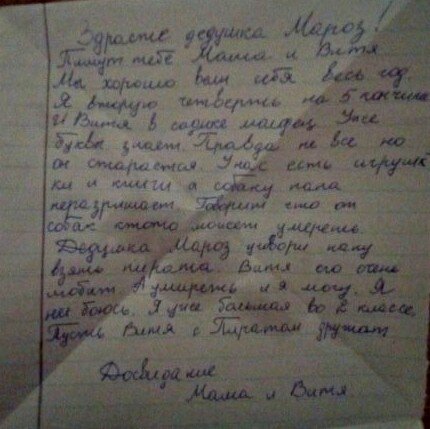 Здрасте дедушка Мароз!
Пишут тебе Маша и Витя
Мы хорошо вели себя весь год.
Я вторую четверть на 5 кончила
И Витя в садике молдец Уже
буквы знает. Правда не все но
он старается. Унас есть игруш
ки и книги а собаку папа
неразришает. Говорит что от
собак ктото может умереть.
Дедушка Мароз уговори папу
взять пирата. Витя его очень
любит. А умиреть и я могу. Я
не боюсь. Я уже большая во 2 классе.
Пусть Витя с Пиратом дружат
Досвидание
Маша и Витя